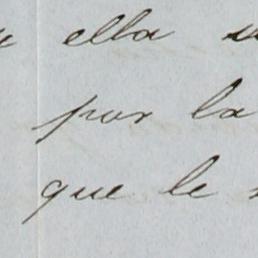 ella
por la
que le